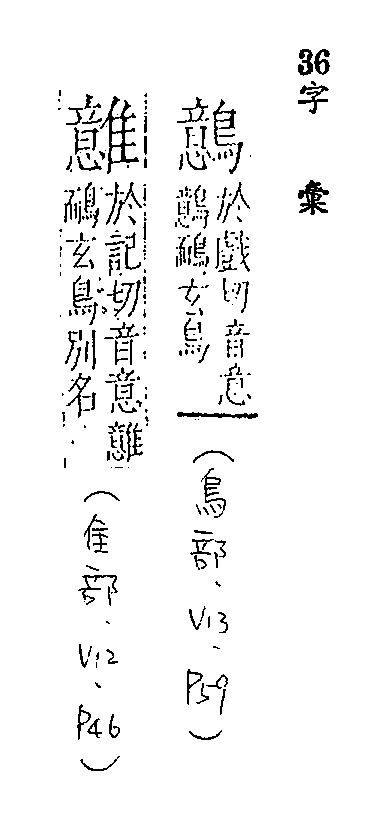 36字彙
鷾
於戲切音意
鷾鴯玄鳥
(鳥部、V13、P59)
於記切音意
鴯玄鳥別名
(隹部、V12、P46)